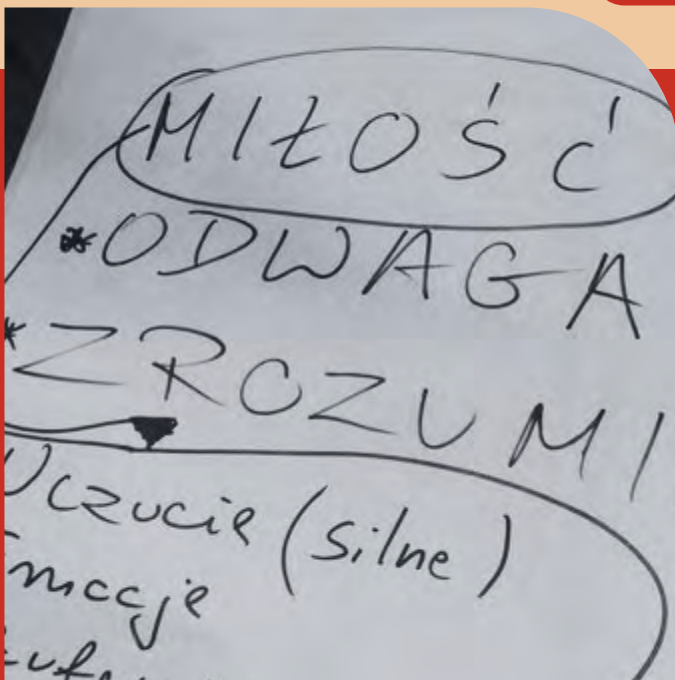 MIŁOŚĆ
*ODWAGA
*ZROZUMI
Uczucie (silne)
Emocje